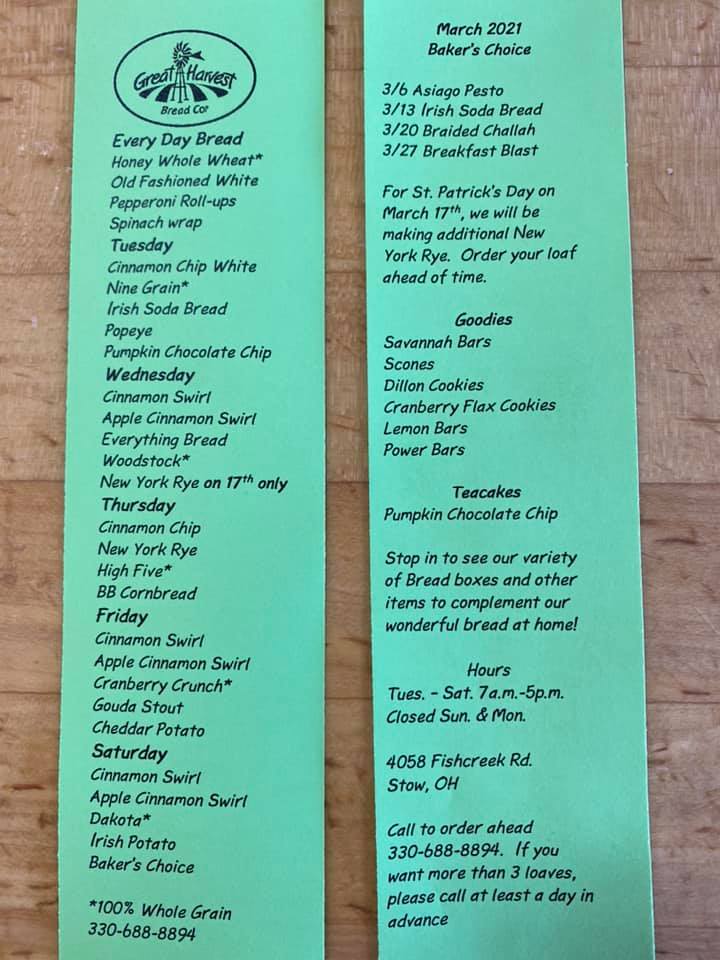 Great Harvest
Bread Co®
Every Day Bread
Honey Whole Wheat*
Old Fashioned White
Pepperoni Roll-ups
Spinach wrap
Tuesday
Cinnamon Chip White
Nine Grain*
Irish Soda Bread
Popeye
Pumpkin Chocolate Chip
Wednesday
Cinnamon Swirl
Apple Cinnamon Swirl
Everything Bread
Woodstock*
New York Rye on 17th only
Thursday
Cinnamon Chip
New York Rye
High Five*
BB Cornbread
Friday
Cinnamon Swirl
Apple Cinnamon Swirl
Cranberry Crunch*
Gouda Stout
Cheddar Potato
Saturday
Cinnamon Swirl
Apple Cinnamon Swirl
Dakota*
Irish Potato
Baker's Choice
*100% Whole Grain
330-688-8894
March 2021
Baker's Choice
3/6 Asiago Pesto
3/13 Irish Soda Bread
3/20 Braided Challah
3/27 Breakfast Blast
For St. Patrick's Day on
March 17th, we will be
making additional New
York Rye. Order your loaf
ahead of time.
Goodies
Savannah Bars
Scones
Dillon Cookies
Cranberry Flax Cookies
Lemon Bars
Power Bars
Teacakes
Pumpkin Chocolate Chip
Stop in to see our variety
of Bread boxes and other
items to complement our
wonderful bread at home!
Hours
Tues. - Sat. 7a.m.-5p.m.
Closed Sun. & Mon.
4058 Fishcreek Rd.
Stow, OH
Call to order ahead
330-688-8894. If you
want more than 3 loaves,
please call at least a day in
advance